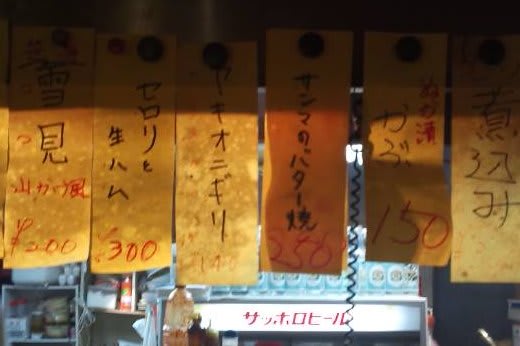 雪見
山かけ風
¥200
セロリと
生ハム
¥300
ヤキオニギリ
サンマのバター焼
250
ぬか漬
かぶ
150
煮込み
サッポロビール